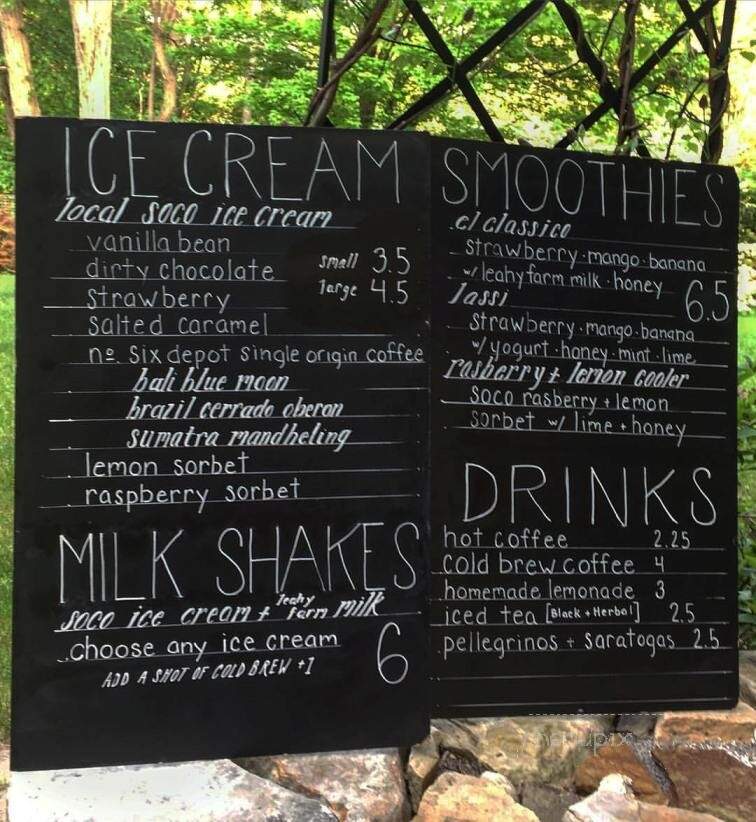 ICE CREAM
local soco ice cream
vanilla bean
dirty chocolate
small 3.5
strawberry
large 4.5
salted caramel
nº six depot single origin coffee
bali blue moon
brazil cerrado oberon
sumatra mandheling
lemon sorbet
raspberry sorbet
MILK SHAKES
soco ice cream + leahy farm milk
choose any ice cream
6
ADD A SHOT OF COLD BREW +1
SMOOTHIES
el classico
strawberry · mango · banana
w/ leahy farm milk · honey
6.5
lassi
strawberry · mango · banana
w/ yogurt · honey · mint · lime
rasberry + lemon cooler
soco rasberry + lemon
sorbet w/ lime + honey
DRINKS
hot coffee 2.25
cold brew coffee 4
homemade lemonade 3
iced tea [Black + Herbal] 2.5
pellegrinos + saratogas 2.5
menupix